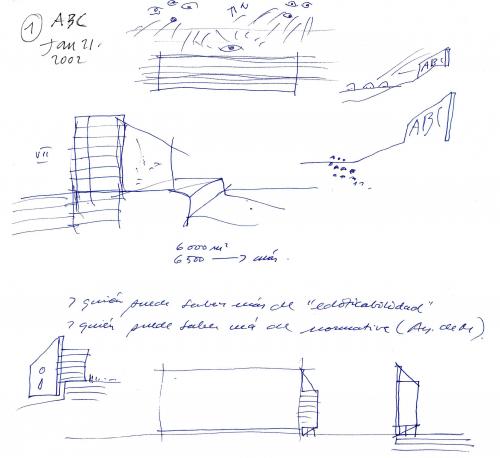 1 ABC
Jan 21.
2002
N
ABC
ABC
VII
6000 m²
6500 → más.
? quién puede saber más de "edificabilidad"
? quién puede saber má de normative (Ay. de